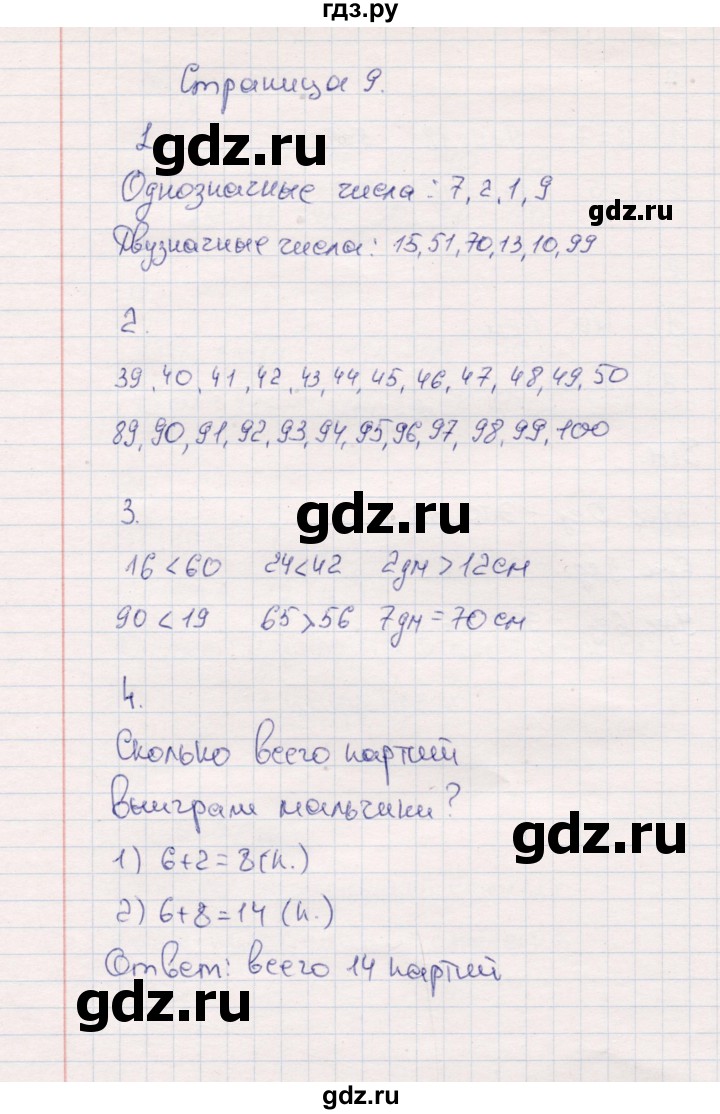 гдз.ру
Страница 9.
1
gdz.ru
Однозначные числа: 7, 2, 1, 9
gdz.ru
Двузначные числа: 15, 51, 70, 13, 10, 99
2.
39, 40, 41, 42, 43, 44, 45, 46, 47, 48, 49, 50
89, 90, 91, 92, 93, 94, 95, 96, 97, 98, 99, 100
gdz.ru
3.
16 < 60 24 < 42 2дм > 12см
90 < 19 65 > 56 7дм = 70 см
4.
Сколько всего партий
выиграли мальчики?
gdz.ru
1) 6+2=8(п.)
2) 6+8=14 (п.)
Ответ: всего 14 партий
gdz.ru
gdz.ru